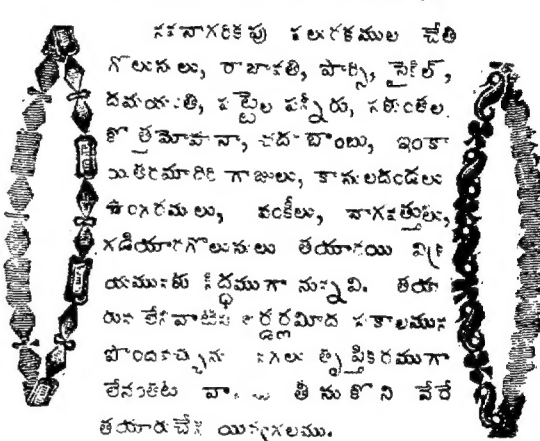 నవనాగరికపు పలురకముల చేతి
గొలుసులు, రాబాకతి, పార్సి, సైకిల్,
దమయంతి, పట్టెల పన్నీరు, శకుంతల
కొత్తమోహనా, చదబొంబు, ఇంకా
యితరమాదిరి గాజులు, కాసులదండలు
ఉంగరములు, వంకీలు, నాగవత్తులు,
గడియారగొలుసులు తయారయి విక్ర
యమునకు సిద్ధముగా నున్నవి. తయా
రున లేనివాటిని ఆర్డర్లమీద సకాలమున
పొందవచ్చును నగలు తృప్తికరముగా
లేనియెడ వాటిని తీసుకొని వేరే
తయారుచేసి యివ్వగలము.